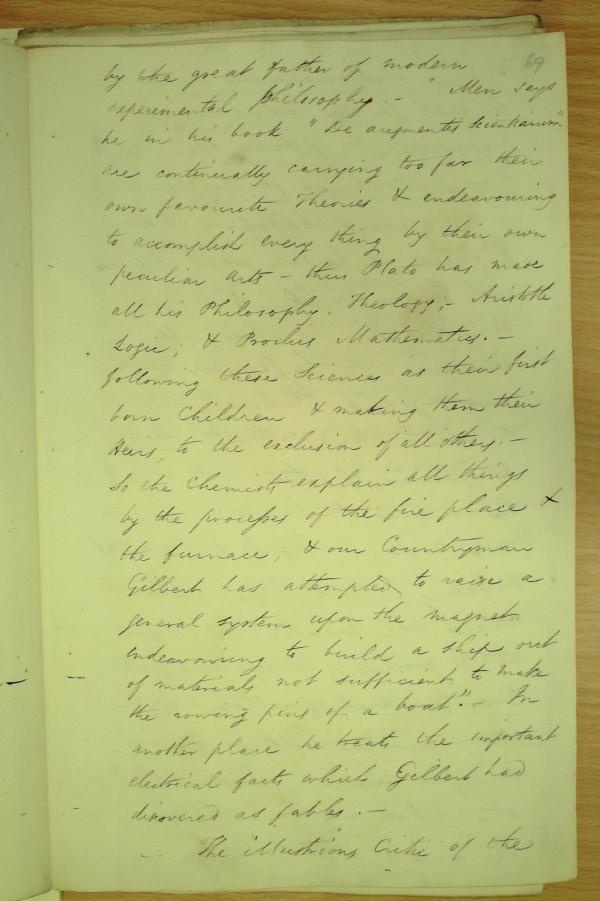 69
by the great father of modern
experimental Philosophy. - "Men" says
he in his book "De augmentis Scientiarum"
are continually carrying too far their
own favourite Theories & endeavouring
to accomplish every thing by their own
peculiar arts - thus Plato has made
all his Philosophy, Theology; - Aristotle
Logic; & Proclus Mathematics. -
following these Sciences as their first
born Children & making them their
Heirs, to the exclusion of all others. -
So the Chemists explain all things
by the processes of the fire place &
the furnace, & our Countryman
Gilbert has attempted to raise a
general system upon the magnet
endeavouring to build a ship out
of materials not sufficient to make
the rowing pins of a boat". - In
another place he treats the important
electrical facts which Gilbert had
discovered as fables. -
- The illustrious Critic of the